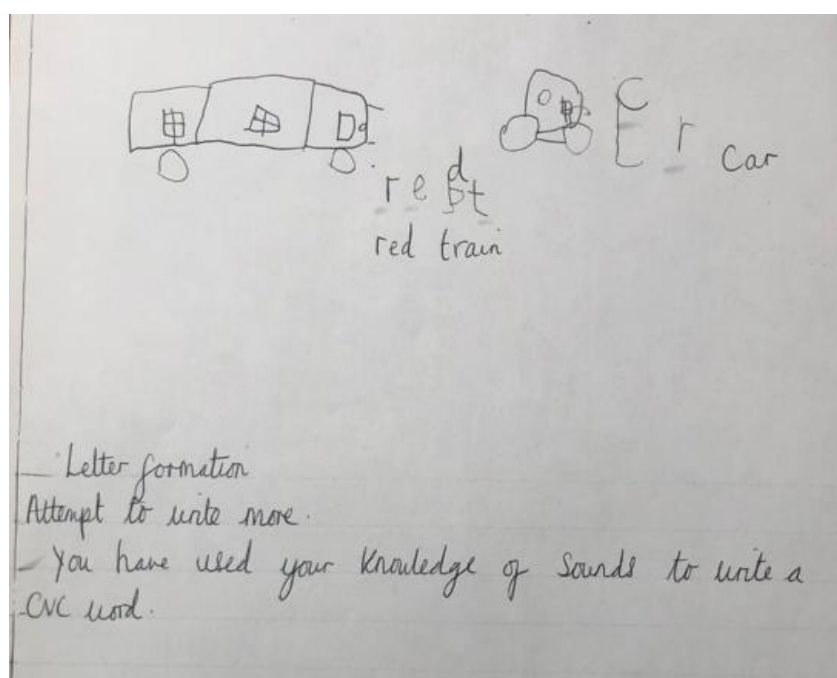 C
r car
d
r e t
red train
Letter formation
Attempt to write more.
You have used your knowledge of sounds to write a
CVC word.